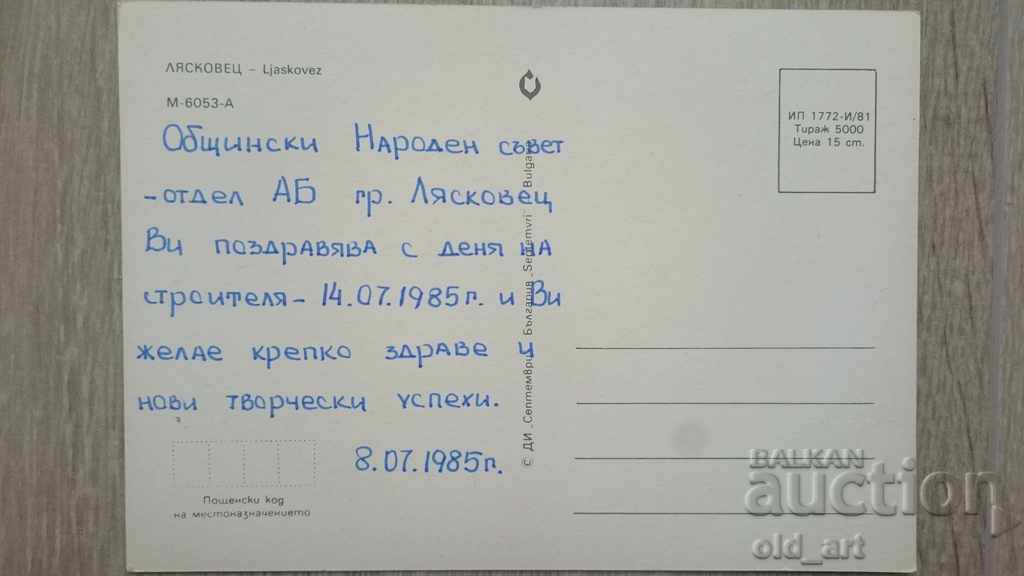 ЛЯСКОВЕЦ – Ljaskovez
М-6053-А
Общински Народен съвет
- отдел АБ гр. Лясковец
Ви поздравява с деня на
строителя - 14.07.1985г. и Ви
желае крепко здраве и
нови творчески успехи.
8.07.1985г.
Пощенски код
на местоназначението
© ДИ „Септември", България „Septemvri" Bulgaria
ИП 1772-И/81
Тираж 5000
Цена 15 ст.
BALKAN
auction
old_art